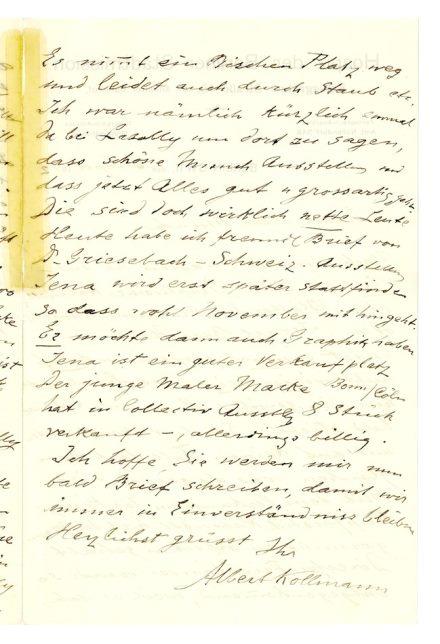 Es nimmt ein Bischen Platz weg
und leidet auch durch Staub etc.
Ich war nämlich kürzlich einmal
da bei Lasally um dort zu sagen,
dass schöne Munch Ausstellun und
dass jetzt Alles gut u grossartig
Die sind doch wirklich nette Leute
Heute habe ich Brief von
Dr Griesebach – Schweiz. Ausstellun
Jena wird erst später stattfinden
so dass wohl November mit hingeht.
Er möchte dann auch Graphik haben
Jena ist ein guter Verkaufplatz
Der junge Maler Macke Bonn/Cöln
hat in Collectiv Ausstllg 8 Stück
verkauft –, allerdings billig.
Ich hoffe, Sie werden mir nun
bald Brief schreiben, damit wir
immer in Einverständniss bleiben
Herzlichst grüsst Ihr
Albert Kollmann